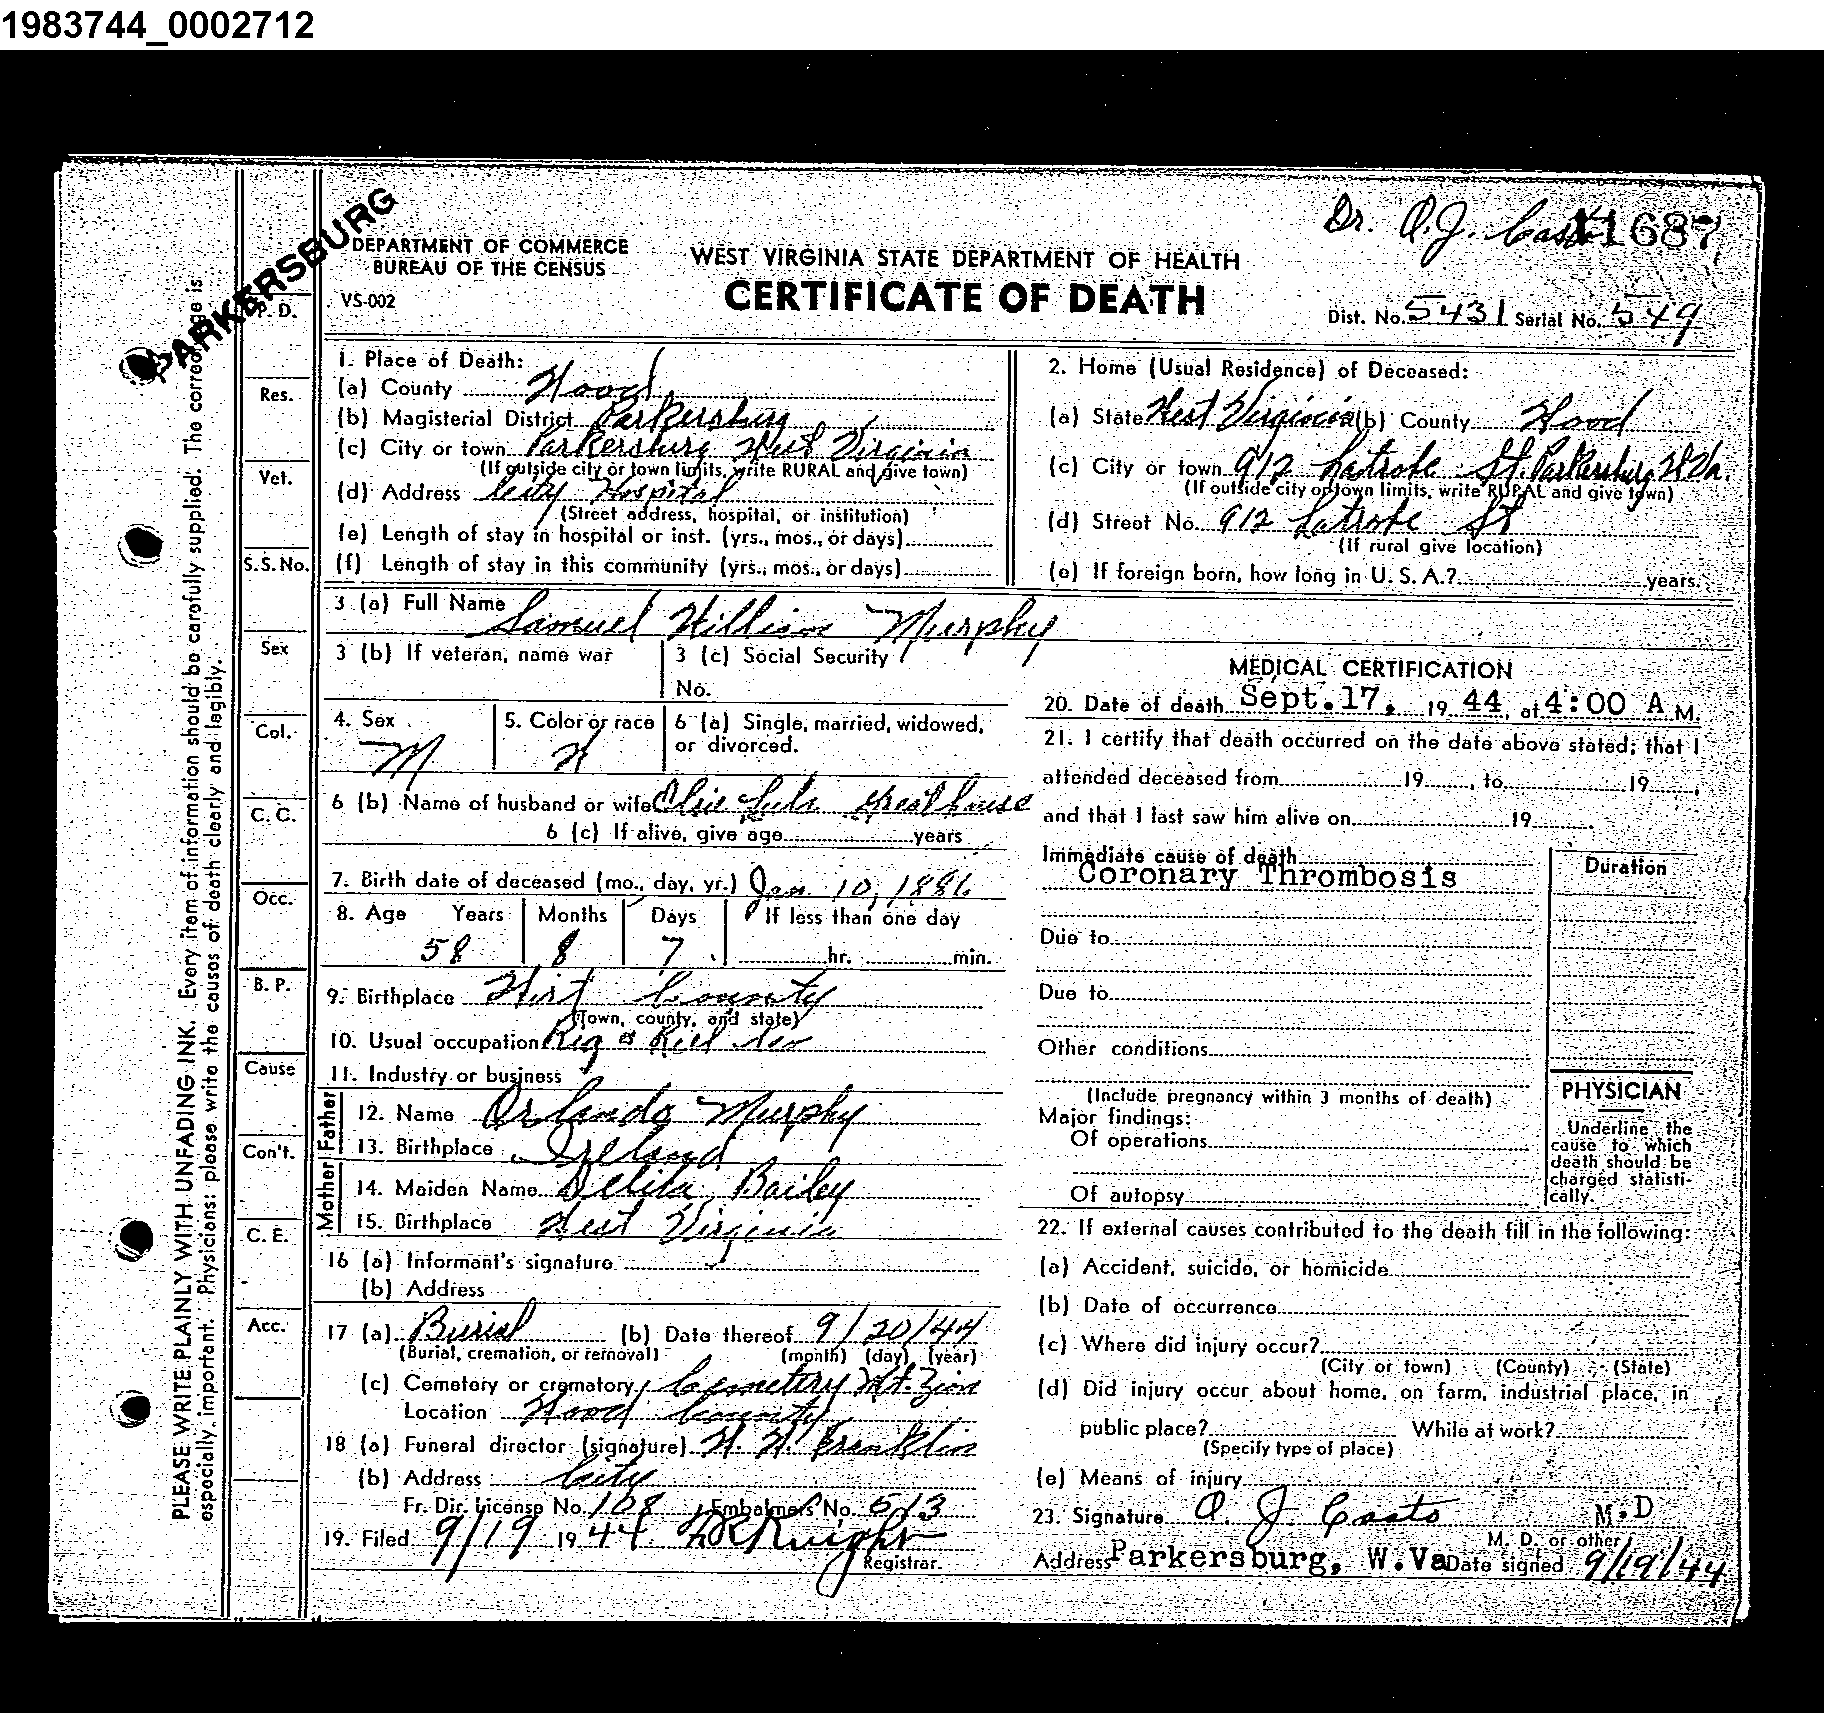 1983744_0002712
PARKERSBURG
DEPARTMENT OF COMMERCE
BUREAU OF THE CENSUS
VS-002
WEST VIRGINIA STATE DEPARTMENT OF HEALTH
CERTIFICATE OF DEATH
Dr. O.J. Casto
11687
Dist. No. 5431 Serial No. 549
1. Place of Death:
(a) County Wood
(b) Magisterial District Parkersburg
(c) City or town Parkersburg West Virginia
(If outside city or town limits, write RURAL and give town)
(d) Address City Hospital
(Street address, hospital, or institution)
(e) Length of stay in hospital or inst. (yrs., mos., or days)
(f) Length of stay in this community (yrs., mos., or days)
2. Home (Usual Residence) of Deceased:
(a) State West Virginia (b) County Wood
(c) City or town 912 Latrobe St. Parkersburg W Va.
(If outside city or town limits, write RURAL and give town)
(d) Street No. 912 Latrobe St
(If rural give location)
(e) If foreign born, how long in U. S. A.? years.
3 (a) Full Name Samuel William Murphy
3 (b) If veteran, name war
3 (c) Social Security
No.
4. Sex
M
5. Color or race
W
6 (a) Single, married, widowed,
or divorced.
6 (b) Name of husband or wife Elsie Lula Greathouse
6 (c) If alive, give age years
7. Birth date of deceased (mo., day, yr.) Jan. 10, 1886
8. Age Years Months Days If less than one day
58 8 7 hr. min.
9. Birthplace Wirt County
(Town, county, and state)
10. Usual occupation Rig
11. Industry or business
Father
12. Name Orlando Murphy
13. Birthplace Ireland
Mother
14. Maiden Name Delila Bailey
15. Birthplace West Virginia
16 (a) Informant's signature
(b) Address
17 (a) Burial (b) Date thereof 9/20/44
(Burial, cremation, or removal) (month) (day) (year)
(c) Cemetery or crematory Cemetery Mt. Zion
Location Wood County
18 (a) Funeral director (signature) W. W. Franklin
(b) Address City
Fr. Dir. License No. 108 Embalmers No. 513
19. Filed 9/19 1944 Knight
Registrar.
MEDICAL CERTIFICATION
20. Date of death Sept. 17, 1944, at 4:00 A M.
21. I certify that death occurred on the date above stated; that I
attended deceased from 19 , to 19 ,
and that I last saw him alive on 19 .
Immediate cause of death
Coronary Thrombosis
Duration
Due to
Due to
Other conditions
(Include pregnancy within 3 months of death)
Major findings:
Of operations
Of autopsy
PHYSICIAN
Underline the
cause to which
death should be
charged statisti-
cally.
22. If external causes contributed to the death fill in the following:
(a) Accident, suicide, or homicide
(b) Date of occurrence
(c) Where did injury occur?
(City or town) (County) (State)
(d) Did injury occur about home, on farm, industrial place, in
public place? While at work?
(Specify type of place)
(e) Means of injury
23. Signature O. J. Casto M.D
M. D. or other
Address Parkersburg, W.Va Date signed 9/19/44
P. D.
Res.
Vet.
S.S. No.
Sex
Col.
C. C.
Occ.
B. P.
Cause
Con't.
C. E.
Acc.
PLEASE WRITE PLAINLY WITH UNFADING INK. Every item of information should be carefully supplied. The correct age is
especially important. Physicians: please write the causes of death clearly and legibly.